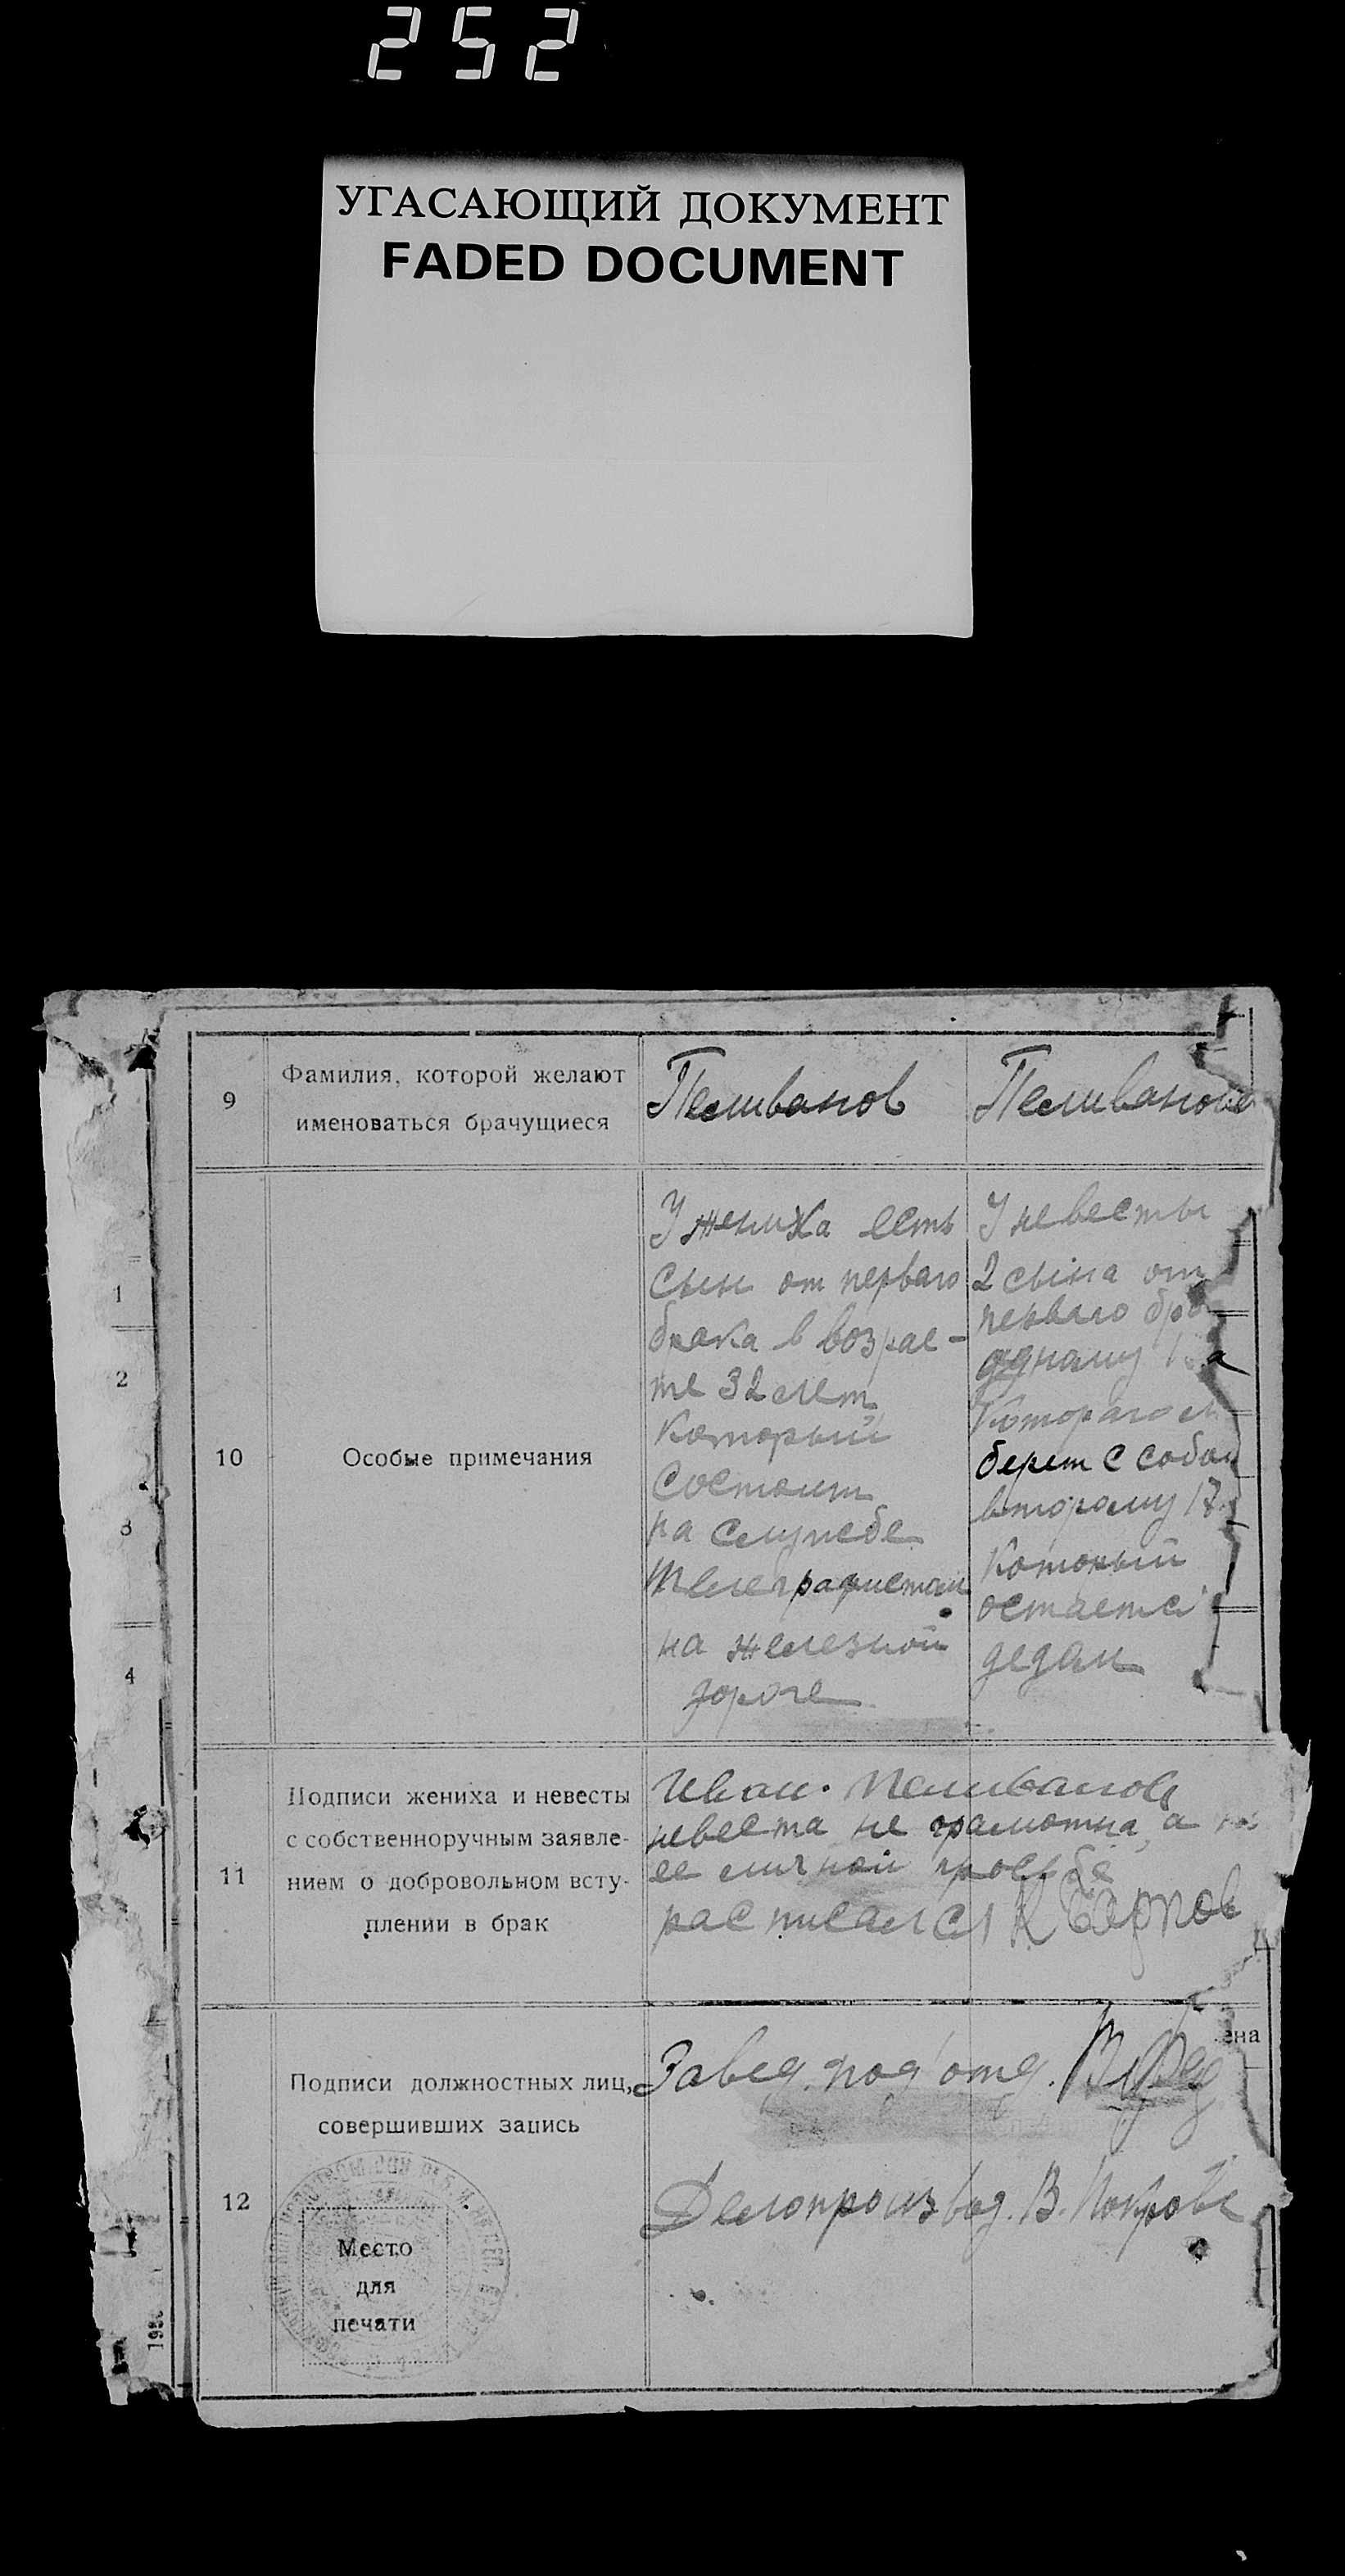 252
УГАСАЮЩИЙ ДОКУМЕНТ
FADED DOCUMENT
9
Фамилия, которой желают
именоваться брачущиеся
Пеливанов
Пеливанова
10
Особые примечания
У жениха есть
сын от перваго
брака в возрас-
те 32 лет
который
состоит
на службе
телеграфистом
на железной
дороге
У невесты
2 сына от
перваго бра
одному
котораго
берет с собой
второму 17
который
остается
дедам
11
Подписи жениха и невесты
с собственноручным заявле-
нием о добровольном всту-
плении в брак
Иван Пеливанов
невеста не грамотна, а по
ее личной просьбе
расписался К
12
Подписи должностных лиц,
совершивших запись
Место
для
печати
Завед. под отд.
ена
Делопроизвод. В. Покров
1
2
3
4